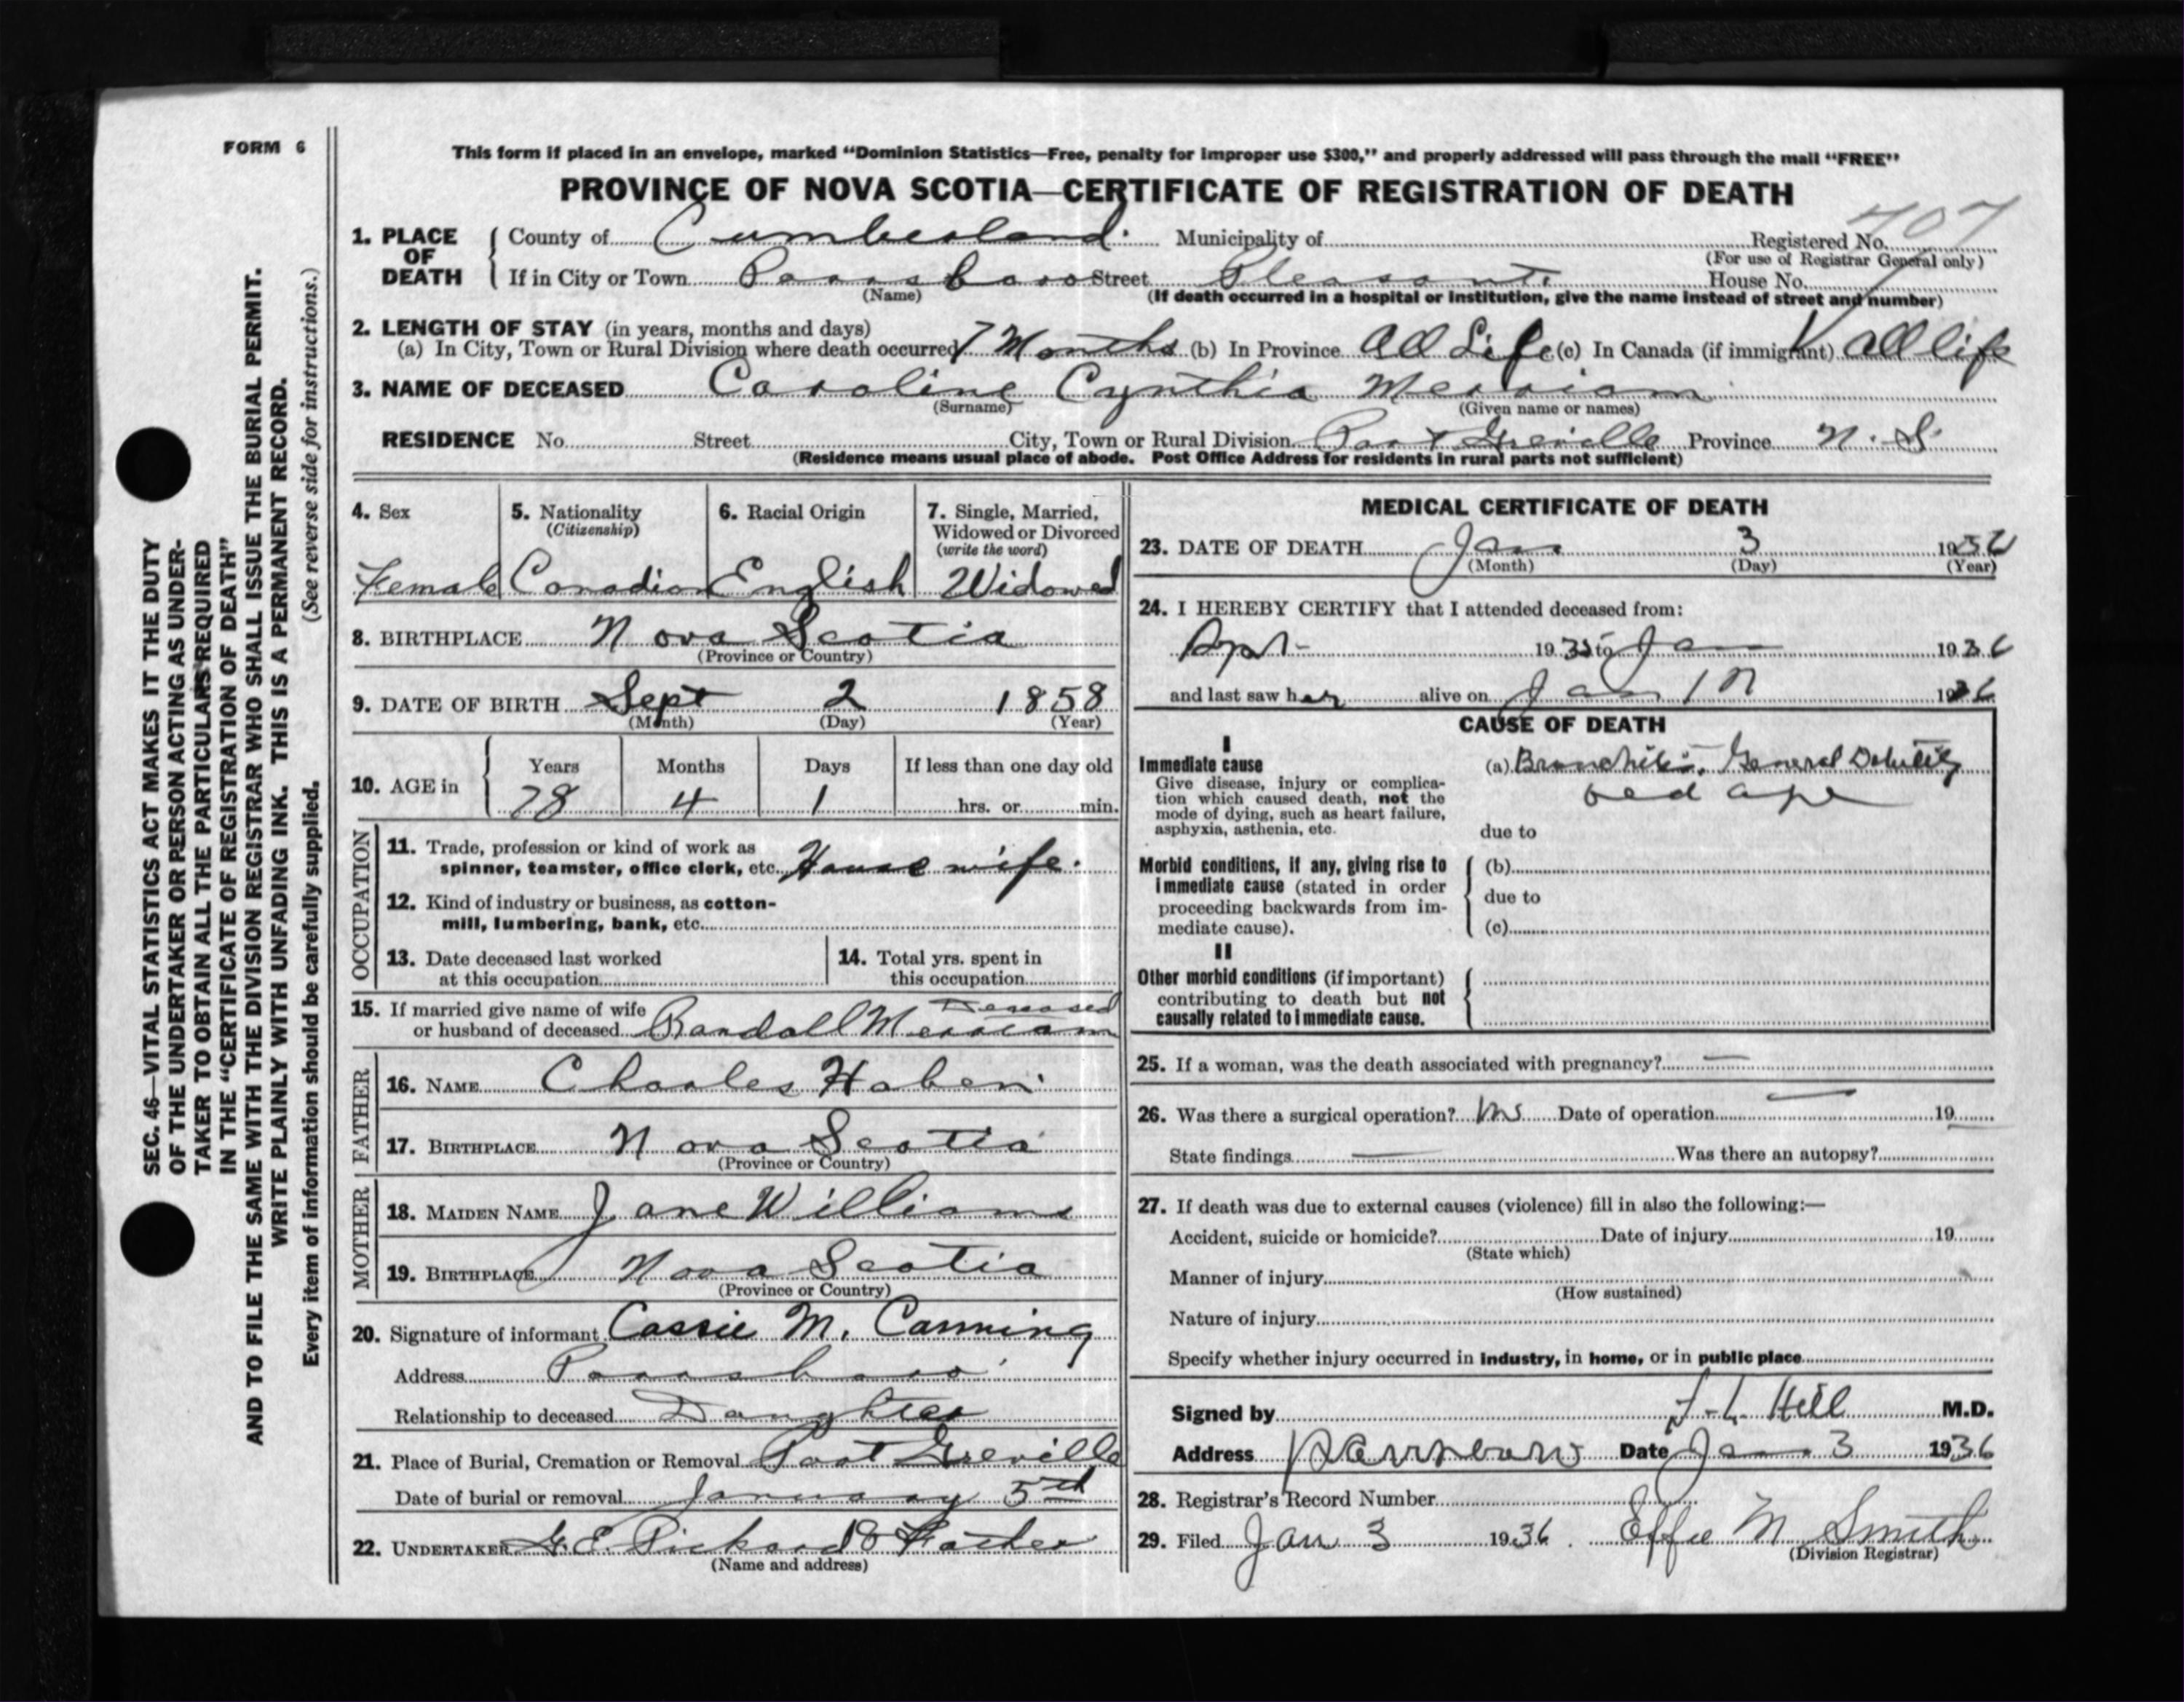 FORM 6
This form if placed in an envelope, marked “Dominion Statistics—Free, penalty for improper use $300,” and properly addressed will pass through the mail “FREE”
PROVINCE OF NOVA SCOTIA—CERTIFICATE OF REGISTRATION OF DEATH
1. PLACE OF DEATH County of Cumberland. Municipality of Registered No. 707
(For use of Registrar General only)
If in City or Town Parrsboro Street Pleasant. House No.
(Name) (If death occurred in a hospital or institution, give the name instead of street and number)
2. LENGTH OF STAY (in years, months and days)
(a) In City, Town or Rural Division where death occurred 7 Months (b) In Province All Life (c) In Canada (if immigrant) All life
3. NAME OF DECEASED Caroline Cynthia Merriam
(Surname) (Given name or names)
RESIDENCE No. Street City, Town or Rural Division Port Greville Province N. S.
(Residence means usual place of abode. Post Office Address for residents in rural parts not sufficient)
4. Sex Female
5. Nationality (Citizenship) Canadian
6. Racial Origin English
7. Single, Married, Widowed or Divorced (write the word) Widowed
8. BIRTHPLACE Nova Scotia
(Province or Country)
9. DATE OF BIRTH Sept 2 1858
(Month) (Day) (Year)
10. AGE in Years Months Days If less than one day old
78 4 1 hrs. or min.
OCCUPATION
11. Trade, profession or kind of work as
spinner, teamster, office clerk, etc. House wife.
12. Kind of industry or business, as cotton-
mill, lumbering, bank, etc.
13. Date deceased last worked
at this occupation
14. Total yrs. spent in
this occupation
15. If married give name of wife Deceased
or husband of deceased Randall Merriam
FATHER
16. NAME Charles Haben
17. BIRTHPLACE Nova Scotia
(Province or Country)
MOTHER
18. MAIDEN NAME Jane Williams
19. BIRTHPLACE Nova Scotia
(Province or Country)
20. Signature of informant Cassie M. Canning
Address Parrsboro
Relationship to deceased Daughter
21. Place of Burial, Cremation or Removal Port Greville
Date of burial or removal January 5th
22. UNDERTAKER G. E. Pickard &
(Name and address)
MEDICAL CERTIFICATE OF DEATH
23. DATE OF DEATH Jan 3 1936
(Month) (Day) (Year)
24. I HEREBY CERTIFY that I attended deceased from:
1935 to Jan 1936
and last saw her alive on Jan 1936
CAUSE OF DEATH
I
Immediate cause (a) Bronchitis, General Debility
old age
Give disease, injury or complica-
tion which caused death, not the
mode of dying, such as heart failure,
asphyxia, asthenia, etc. due to
Morbid conditions, if any, giving rise to (b)
immediate cause (stated in order
proceeding backwards from im- due to
mediate cause). (c)
II
Other morbid conditions (if important)
contributing to death but not
causally related to immediate cause.
25. If a woman, was the death associated with pregnancy? —
26. Was there a surgical operation? no Date of operation — 19
State findings — Was there an autopsy?
27. If death was due to external causes (violence) fill in also the following:—
Accident, suicide or homicide? Date of injury 19
(State which)
Manner of injury
(How sustained)
Nature of injury
Specify whether injury occurred in industry, in home, or in public place
Signed by Hill M.D.
Address Parrsboro Date Jan 3 1936
28. Registrar's Record Number
29. Filed Jan 3 1936. Effie M Smith
(Division Registrar)
SEC. 46—VITAL STATISTICS ACT MAKES IT THE DUTY
OF THE UNDERTAKER OR PERSON ACTING AS UNDER-
TAKER TO OBTAIN ALL THE PARTICULARS REQUIRED
IN THE “CERTIFICATE OF REGISTRATION OF DEATH”
AND TO FILE THE SAME WITH THE DIVISION REGISTRAR WHO SHALL ISSUE THE BURIAL PERMIT.
WRITE PLAINLY WITH UNFADING INK. THIS IS A PERMANENT RECORD.
Every item of information should be carefully supplied. (See reverse side for instructions.)